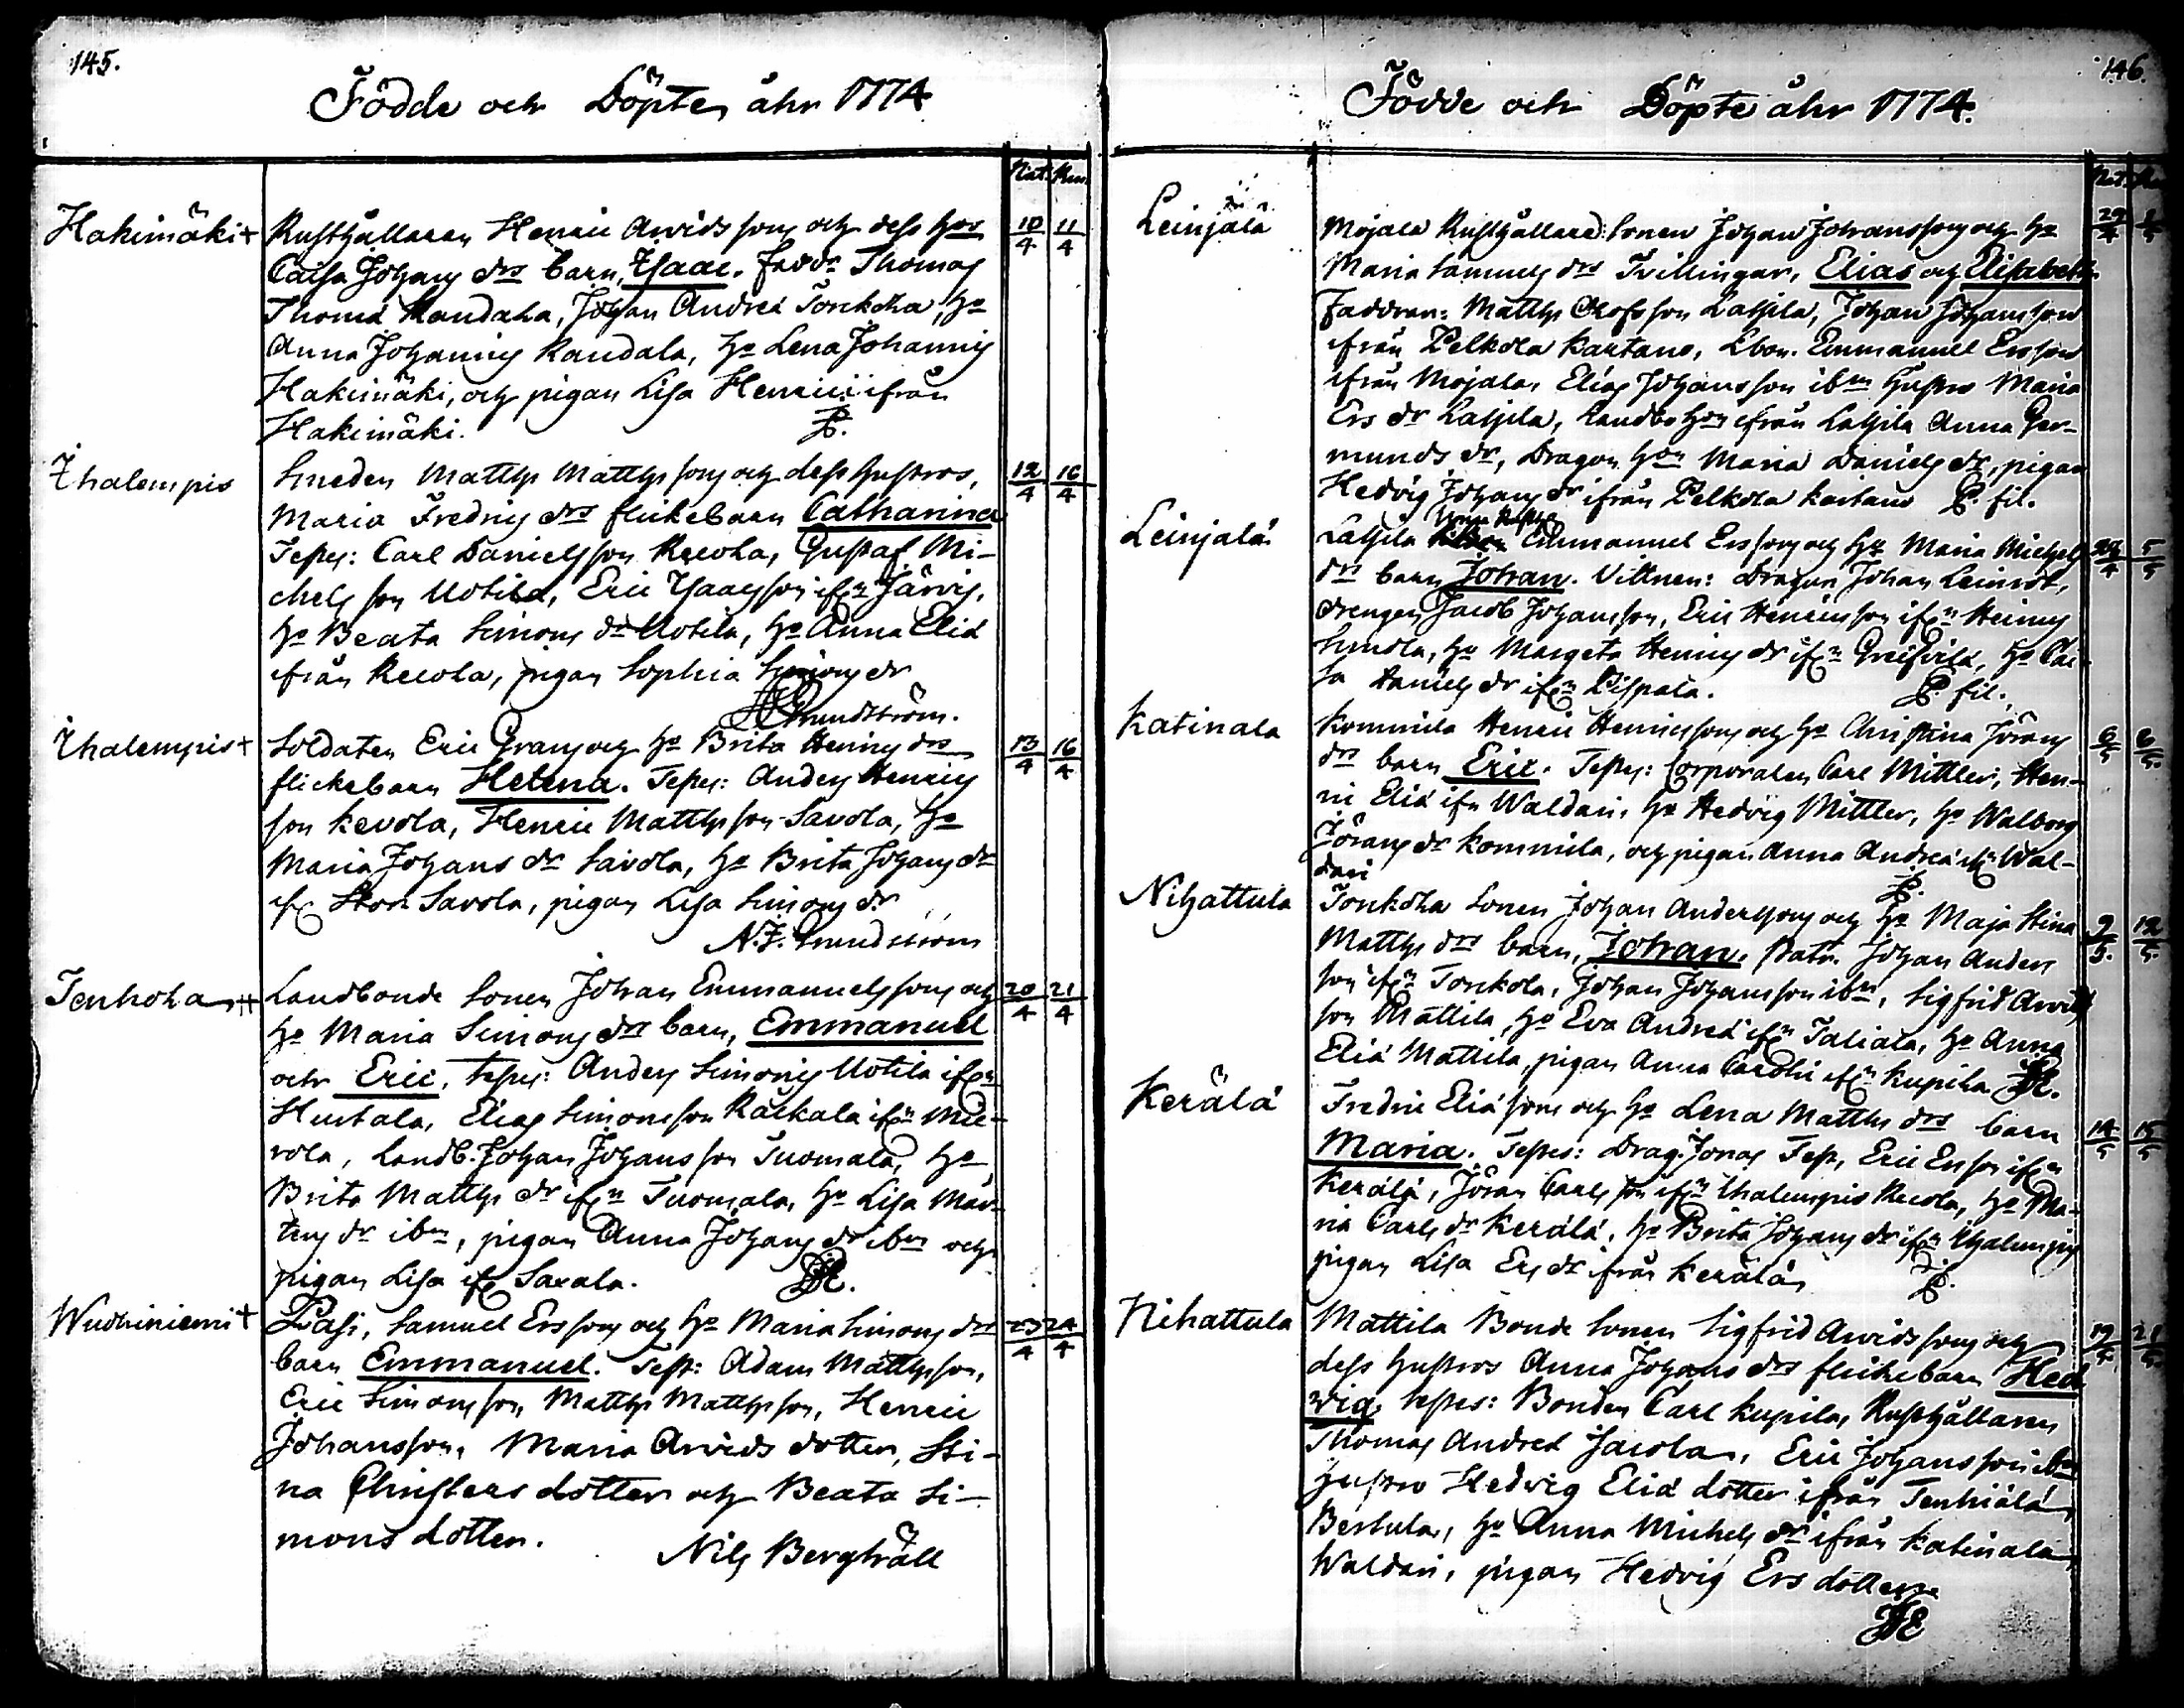 145.
Födde och Döpte åhr 1774
Nat. Ren.
Hakimäki + Rusthållaren Henric Arvidsson och dess hos 10/4 11/4
Caisa Johans drs barn, Isaac. Faddr Thomas
Thomæ Kaudala, Johan Andreæ Tonkola, ho
Anna Johannis Kaudala, ho Lena Johannis
Hakimäki, och pigan Lisa Henrici ifrån
Hakimäki.
Ihalempis Smeden Matths Matthsson och dess hustros, 12/4 16/4
Maria Fredrics drs flickebarn Catharina
Testes: Carl Danielsson Recola, Gustaf Mi-
chelsson Uotila, Eric Isaacsson ifrn Järvis,
ho Beata Simons dr Uotila, ho Anna Eliæ
ifrån Recola, pigan Sophia Simons dr
Grundström.
Ihalempis + Soldaten Eric Grans och ho Brita Henrics drs 13/4 16/4
flickebarn Helena. Testes: Anders Henrics
son Kevola, Henric Matthsson Savola, ho
Maria Johans dr Savola, ho Brita Johans dr
ifr Stor Savola, pigan Lisa Simons dr
N.J. Grundström
Tenhola ++ Landbonde Sonen Johan Emmanuelssons och 20/4 21/4
ho Maria Simons drs barn, Emmanuel
och Eric, testes: Anders Simonis Uotila ifrn
Hurtala, Elias Simonsson Räikälä ifrn Mie-
rola, Landb. Johan Johansson Tuomala, ho
Brita Matths dr ifrn Tuomala, ho Lisa Mår-
tens dr ibm, pigan Anna Johans dr ibm och
pigan Lisa ifr Saxala.
Wuohiniemi + Pasi, Samuel Erssons och ho Maria Simons drs 23/4 24/4
barn Emmanuel. Test: Adam Matthsson,
Eric Simonsson, Matths Matthsson, Henric
Johansson, Maria Arvids dotter, Sti-
na Christers dotter och Beata Si-
mons dotter.
Nils Berghäll
146.
Födde och Döpte åhr 1774.
Nat.
Leinjälä Mojala Rusthållare Sonen Johan Johanssons och ho 29/4 1/5
Maria Samuels drs Tvillingar, Elias och Elisabeth
Faddran: Matths Olofsson Lahjila, Johan Johansson
ifrån Pelkola Kartano, Lbon. Emmanuel Ersson
ifrån Mojala, Elias Johansson ibm hustro Maria
Ers dr Lahjila, Landbo hon ifrån Lahjila Anna Ger-
munds dr, Dragon hon Maria Daniels dr, pigan
Hedvig Johans dr ifrån Pelkola Kartano P. fil.
Leinjälä. Lahjila Emmanuel Erssons och ho Maria Michels 5/5
drs barn Johan. Vittnen: Dragon Johan Leinrot,
drengen Jacob Johansson, Eric Henricsson ifrn Heinis
Smola, ho Margeta Henrics dr ifrn Greifvilä, ho Cai-
sa Daniels dr ifrn Pispala. P. fil.
Katinala Kommila Henric Henricssons och ho Christina Jörans 6/5 6/5
drs barn Eric. Testes: Corporalen Carl Mittler, Hen-
ric Eliæ ifrn Waldari, ho Hedvig Mittler, ho Walborg
Jörans dr Kommila, och pigan Anna Andreæ ifrn Wal-
dari
Nihattula Tonkola Sonen Johan Anderssons och ho Maja Stina 9/5. 12/5.
Matths drs barn, Johan. Patr. Johan Anders
son ifrn Tonkola, Johan Johansson ibm, Sigfrid Arvids
son Mattila, ho Eva Andreæ ifrn Taliala, ho Anna
Eliæ Mattila, pigan Anna Caroli ifrn Kupila
Kerälä Fredric Eliæ sons och ho Lena Matths drs barn 14/5 15/5
Maria. Testes: Drag. Jonas Test, Eric Ersson ifrn
Kerälä, Jöran Carlsson ifrn Ihalempis Recola, ho Ma-
ria Carls dr Kerälä, ho Brita Johans dr ifrn Ihalempis
pigan Lisa Ers dr ifrån Kerälä
Nihattula Mattila Bonde Sonen Sigfrid Arvidssons och 19/5 21/5
dess hustros Anna Johans drs flickebarn Hed-
vig. testes: Bonden Carl Kupila, Rusthållaren
Thomas Andreæ Jacola, Eric Johansson ibm
hustro Hedvig Eliæ dotter ifrån Tenhiälä
Bertula, ho Anna Michels dr ifrån Katinala
Waldari, pigan Hedvig Ers dotter